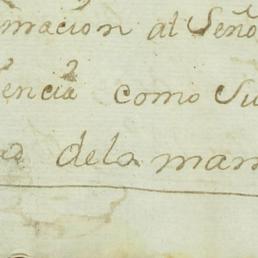 rmacion al Seño
encia como Su
dela man